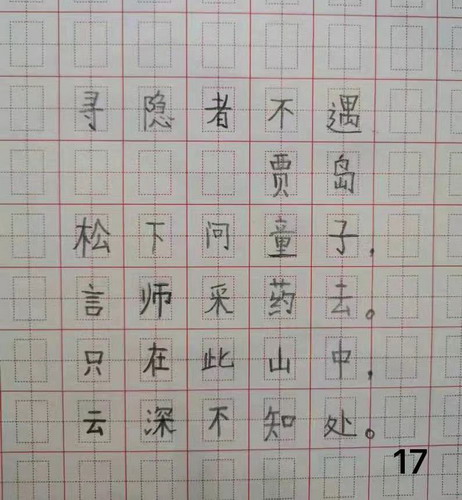 寻隐者不遇
贾岛
松下问童子，
言师采药去。
只在此山中，
云深不知处。
17